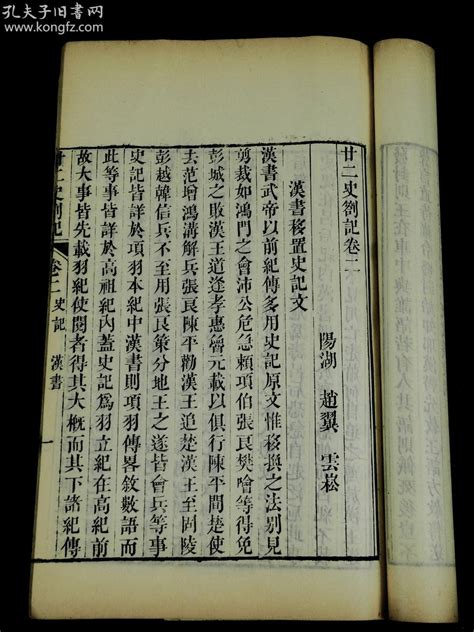 孔夫子旧书网
www.kongfz.com
廿二史劄記卷二
陽湖 趙翼 雲崧
漢書移置史記文
漢書武帝以前紀傳多用史記原文惟移換之法別見
剪裁如鴻門之會沛公危急賴項伯張良樊噲等得免
彭城之敗漢王道逢孝惠魯元載以俱行陳平間楚使
去范增鴻溝解兵張良陳平勸漢王追楚漢王至固陵
彭越韓信兵不至用張良策分地王之遂皆會兵等事
史記皆詳於項羽本紀中漢書則項羽傳畧敘數語而
此等事皆詳於高祖紀內蓋史記為羽立紀在高紀前
故大事皆先載羽紀使閱者得其大概而其下諸紀傳
廿二史劄記 卷二 史記 漢書 一